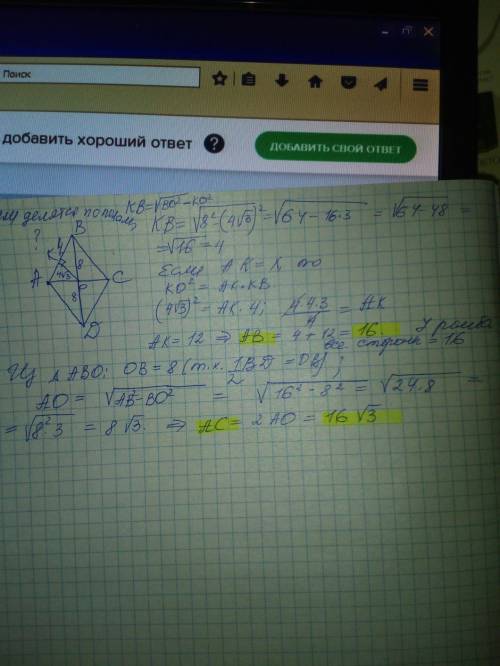 Поиск
добавить хороший ответ ? ДОБАВИТЬ СВОЙ ОТВЕТ
делятся пополам, KB=√BO²-KO²
KB = √8²-(4√3)² = √64-16·3 = √64-48 =
= √16 = 4
? B 4 K 8 A 4√3 O C 8 D
Если AK = X, то
KO² = AK·KB
(4√3)² = AK·4; 4·4·3/4 = AK
AK = 12 ⇒ AB = 4+12 = 16. У ромба
все стороны = 16
Из △ABO: OB = 8 (т.к. 1/2 BD = OB);
AO = √AB²-BO² = √16²-8² = √24·8 =
= √8²·3 = 8√3. ⇒ AC = 2AO = 16√3